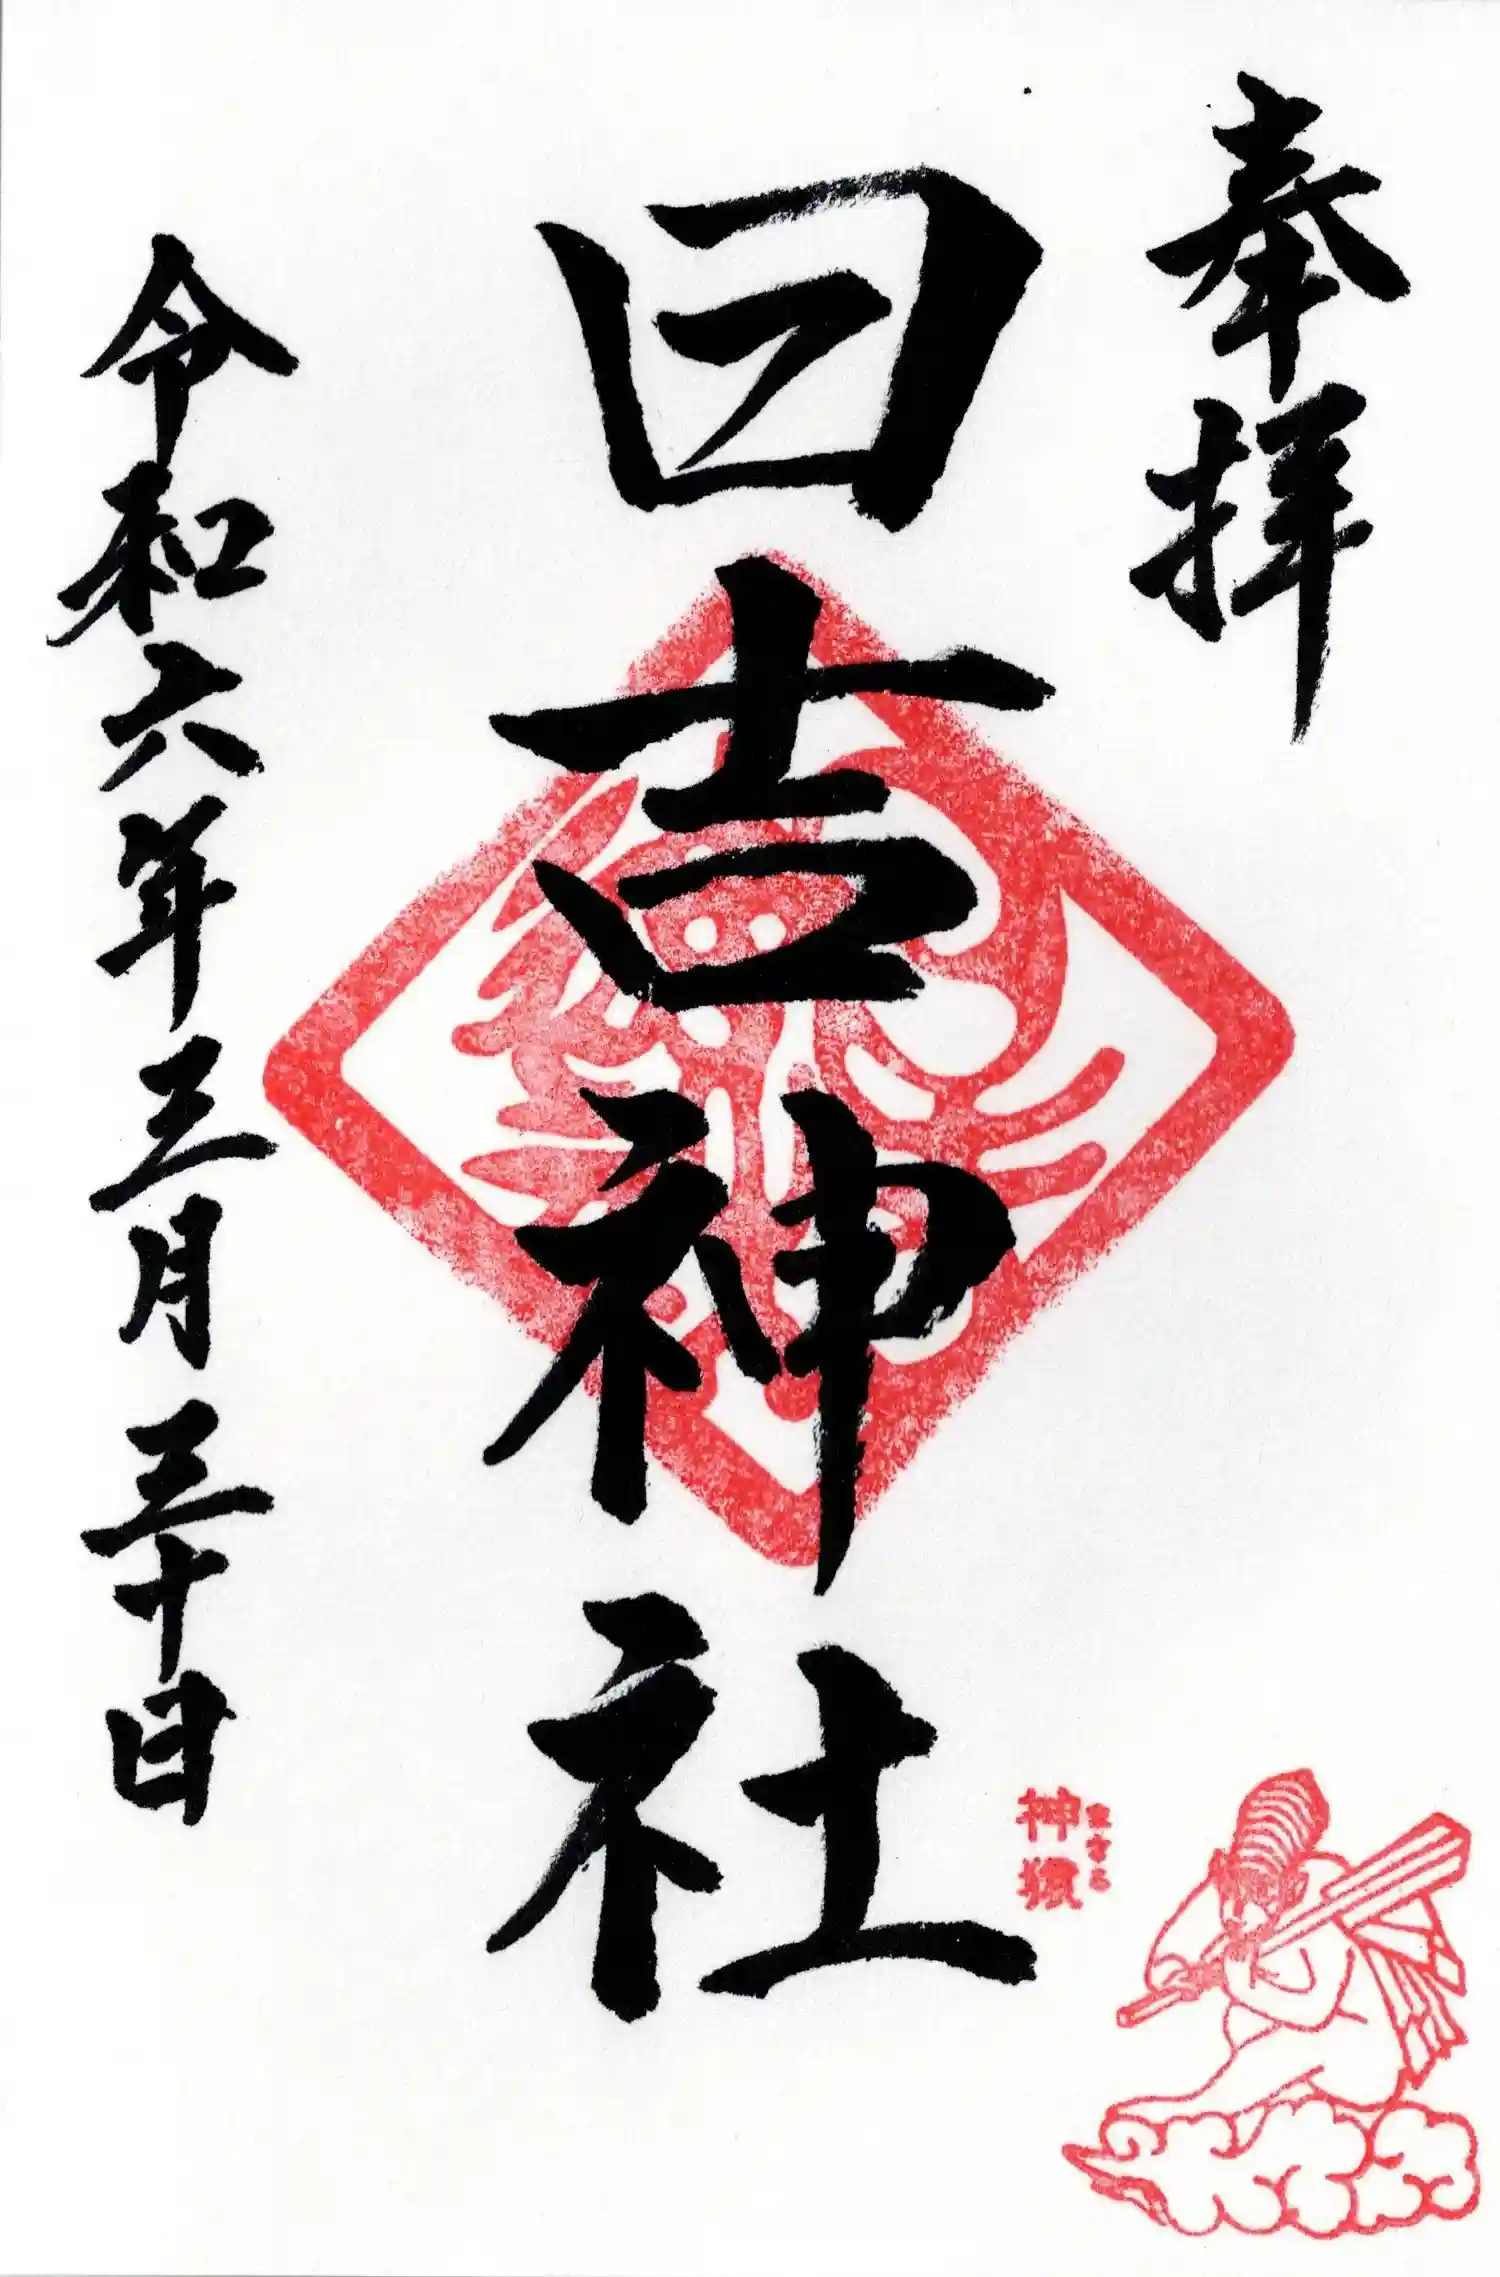 奉拝
日吉神社
令和六年三月三十日
まさる
神猿